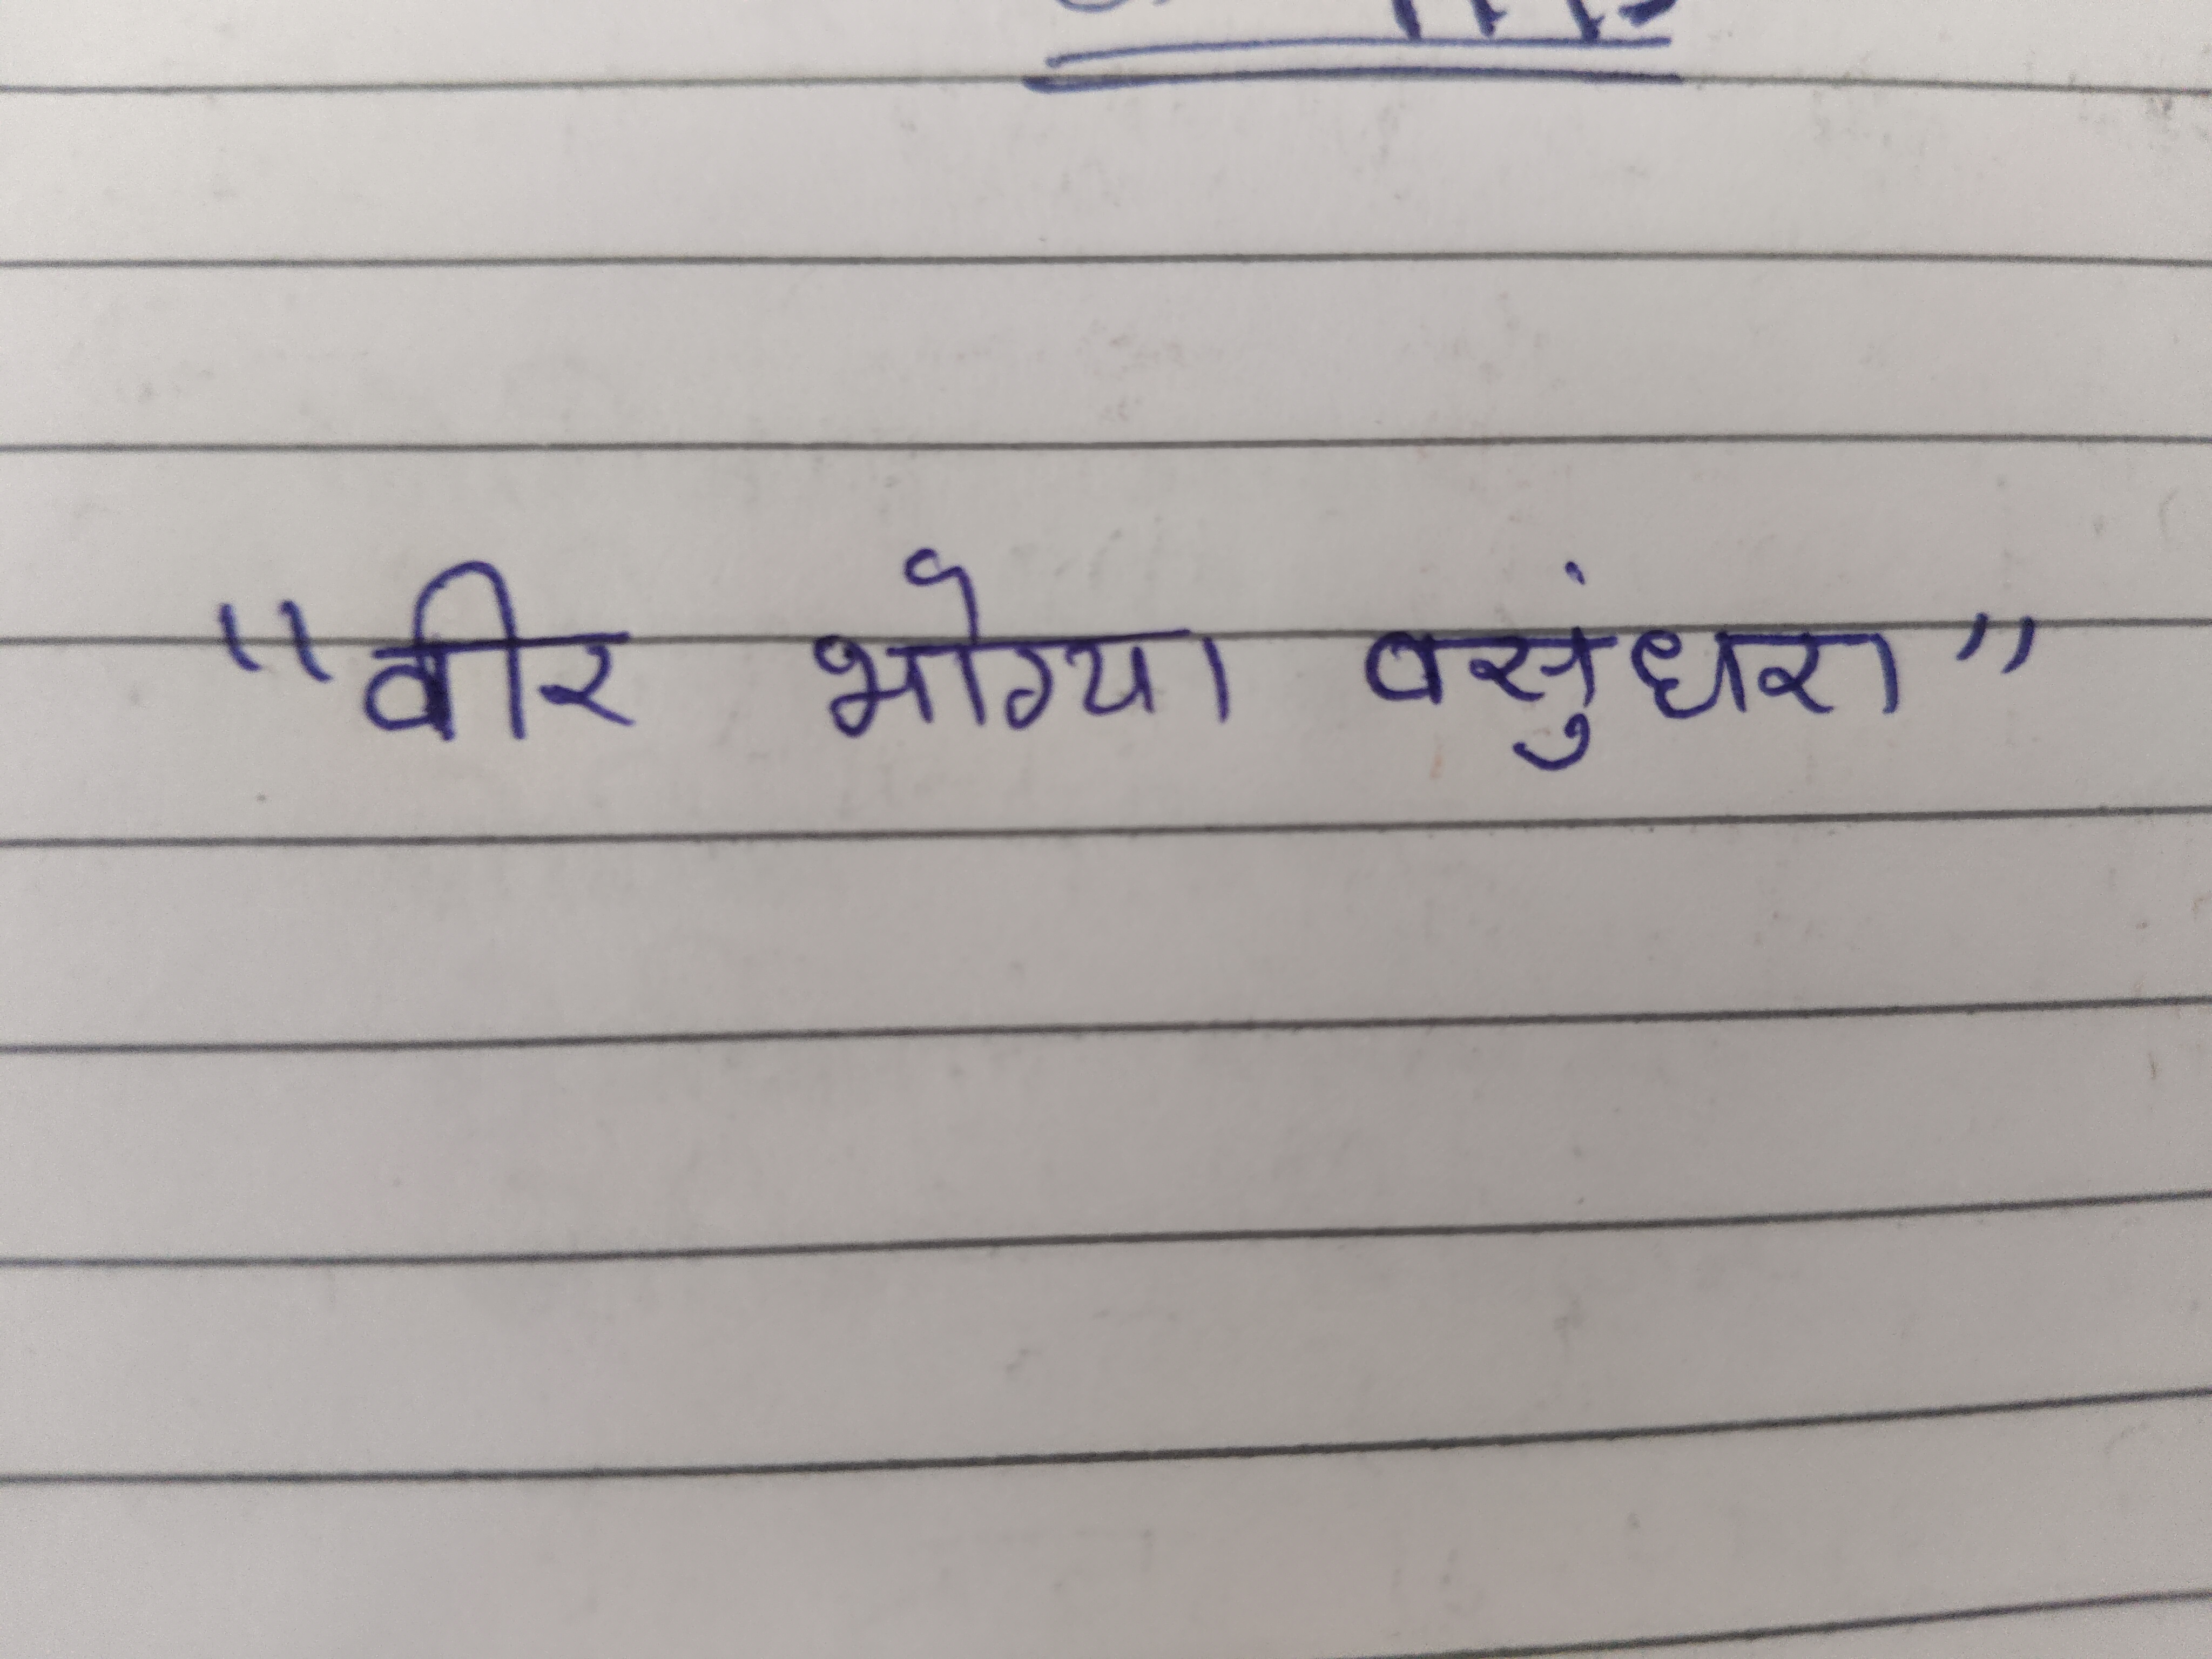 "वीर भोग्या वसुंधरा"